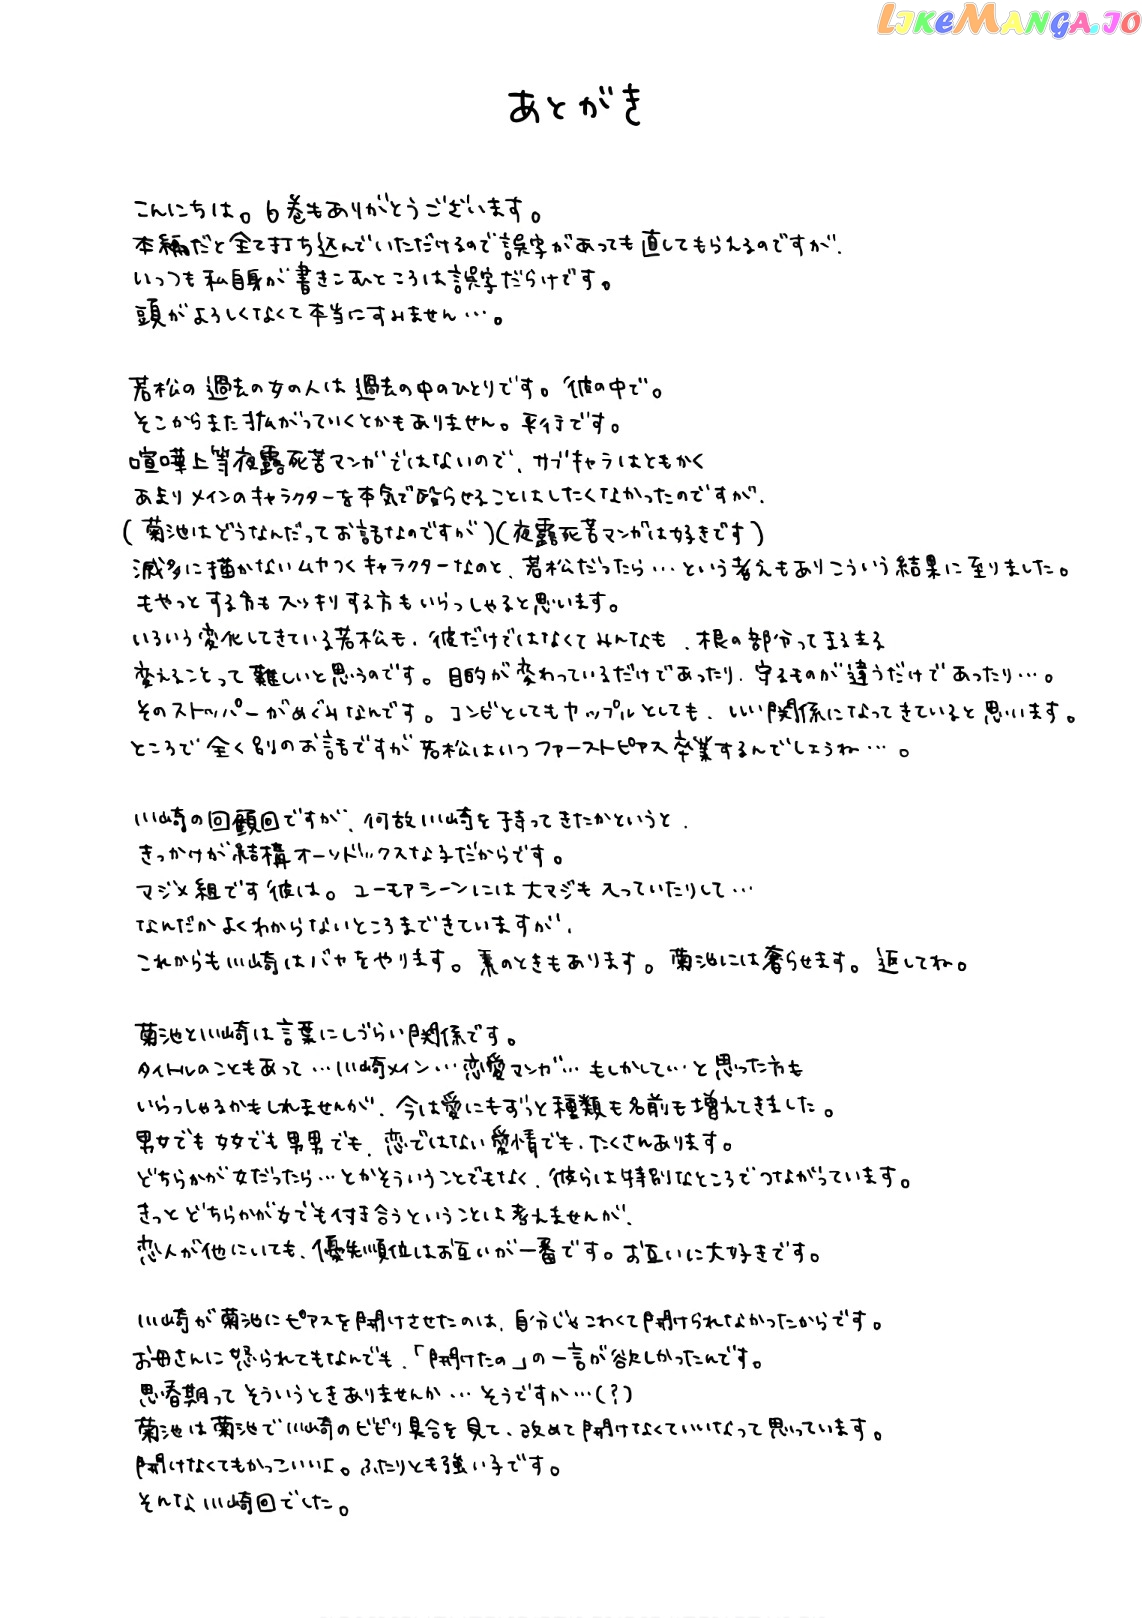 LIKEMANGA.IO
あとがき
こんにちは。6巻もありがとうございます。
本編だと全て打ち込んでいただけるので誤字があっても直してもらえるのですが、
いっつも私自身が書きこむところは誤字だらけです。
頭がよろしくなくて本当にすみません…。
若松の過去の女の人は過去の中のひとりです。彼の中で。
そこからまた拡がっていくとかもありません。平行です。
喧嘩上等夜露死苦マンガではないので、サブキャラはともかく
あまりメインのキャラクターを本気で殴らせることはしたくなかったのですが、
(菊池はどうなんだってお話なのですが)(夜露死苦マンガは好きです)
滅多に描かないムカつくキャラクターなのと、若松だったら…という考えもありこういう結果に至りました。
もやっとする方もスッキリする方もいらっしゃると思います。
いろいろ変化してきている若松も、彼だけではなくてみんなも、根の部分ってまるまる
変えることって難しいと思うのです。目的が変わっているだけであったり、守るものが違うだけであったり…。
そのストッパーがめぐみなんです。コンビとしてもカップルとしても、いい関係になってきていると思います。
ところで全く別のお話ですが若松はいつファーストピアス卒業するんでしょうね…。
川崎の回顧回ですが、何故川崎を持ってきたかというと、
きっかけが結構オーソドックスな子だからです。
マジメ組です彼は。ユーモアシーンには大マジも入っていたりして…
なんだかよくわからないところまできていますが、
これからも川崎はバカをやります。素のときもあります。菊池には奢らせます。返してね。
菊池と川崎は言葉にしづらい関係です。
タイトルのこともあって…川崎メイン…恋愛マンガ…もしかして…と思った方も
いらっしゃるかもしれませんが、今は愛にもずっと種類も名前も増えてきました。
男女でも女女でも男男でも、恋ではない愛情でも、たくさんあります。
どちらかが女だったら…とかそういうことでもなく、彼らは特別なところでつながっています。
きっとどちらかが女でも付き合うということは考えませんが、
恋人が他にいても、優先順位はお互いが一番です。お互いに大好きです。
川崎が菊池にピアスを開けさせたのは、自分じゃこわくて開けられなかったからです。
お母さんに怒られてもなんでも、「開けたの」の一言が欲しかったんです。
思春期ってそういうときありませんか…そうですか…(?)
菊池は菊池で川崎のビビり具合を見て、改めて開けなくていいなって思っています。
開けなくてもかっこいいよ。ふたりとも強い子です。
そんな川崎回でした。